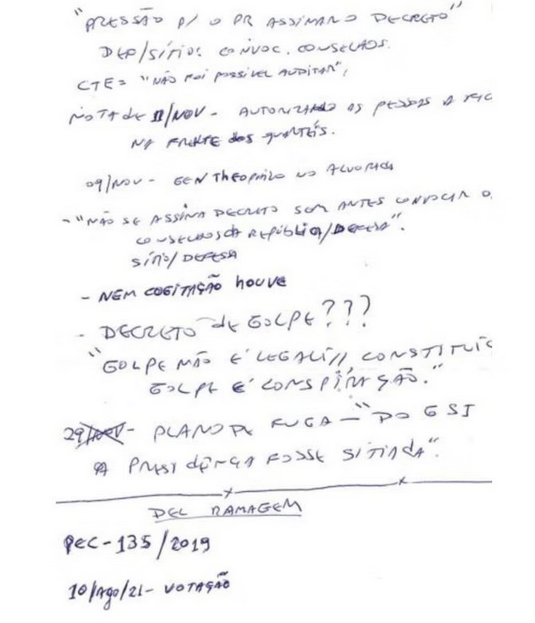 "PRESSÃO P/ O PR ASSINAR O DECRETO"
DEF/SÍTIO: CONVOC. CONSELHOS.
CTE = "NÃO FOI POSSÍVEL AUDITAR",
NOTA de 11/NOV - AUTORIZANDO AS PESSOAS A
NA FRENTE dos QUARTÉIS.
09/NOV - GEN Theophilo NO ALVORADA
- "NÃO SE ASSINA DECRETO SEM ANTES CONVOCAR O
CONSELHO DA REPÚBLICA/DEFESA".
SÍTIO/DEFESA
- NEM COGITAÇÃO houve
- DECRETO de GOLPE???
"GOLPE NÃO É LEGAL // CONSTITUIC
GOLPE É CONSPIRAÇÃO."
29/NOV - PLANO DE FUGA - "DO GSI
A PRESIDÊNCIA FOSSE SITIADA".
DEL RAMAGEM
PEC-135/2019
10/Ago/21 - VOTAÇÃO